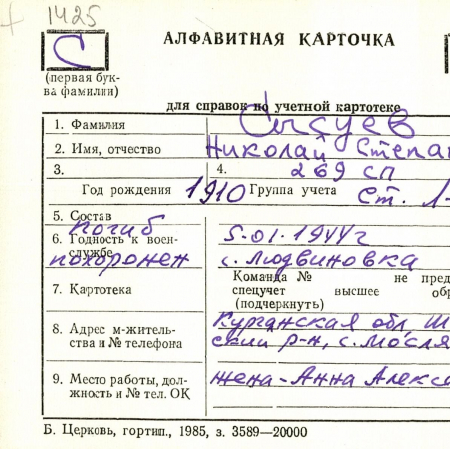 1425
С
АЛФАВИТНАЯ КАРТОЧКА
(первая бук-
ва фамилии)
для справок по учетной картотеке
1. Фамилия Сысуев
2. Имя, отчество Николай Степан
3. 4. 269 сп
Год рождения 1910 Группа учета Ст. Л-
5. Состав погиб
6. Годность к воен-
службе 5.01.1944г
похоронен с. Людвиновка
Команда № не пред
7. Картотека спецучет высшее об
(подчеркнуть)
8. Адрес м-житель- Курганская обл, Ш
ства и № телефона ский р-н, с. Мосля
9. Место работы, дол- жена-Анна Алекса
жность и № тел. ОК
Б. Церковь, гортип., 1985, з. 3589—20000